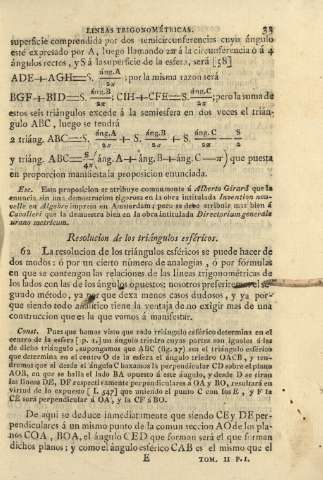 LINEAS TRIGONOMÉTRICAS. 33
superficie comprendida por dos semicircunferencias cuyo ángulo
esté expresado por A, luego llamando 2π á la circunferencia ó á 4
ángulos rectos, y S á la superficie de la esfera, será [58]
ADE+AGH=S. áng.A/2π; por la misma razon será
BGF+BID=S. áng.B/2π; CIH+CFE=S. áng.C/2π; pero la suma de
estos seis triángulos excede á la semiesfera en dos veces el trián-
gulo ABC, luego se tendrá
2 triáng. ABC=S. áng.A/2π + S. áng.B/2π + S. áng.C/2π − S/2
y triáng. ABC=S/4π(áng.A+áng.B+áng.C−π) que puesta
en proporcion manifiesta la proposicion enunciada.
Esc. Esta proposicion se atribuye comunmente á Alberto Girard que la
enuncia sin una demostracion rigorosa en la obra intitulada Invention nou-
velle en Algebre impresa en Amsterdam; pero se debe atribuir mas bien á
Cavalleri que la demuestra bien en la obra intitulada Directorium generale
urano metricum.
Resolucion de los triángulos esféricos.
62 La resolucion de los triángulos esféricos se puede hacer de
dos modos: ó por un cierto número de analogias, ó por fórmulas
en que se contengan las relaciones de las lineas trigonométricas de
los lados con las de los ángulos opuestos; nosotros preferiremos el se-
gundo método, ya por que dexa menos casos dudosos, y ya por-
que siendo todo analítico tiene la ventaja de no exigir mas de una
construccion que es la que vamos á manifestar.
Const. Pues que hemos visto que todo triángulo esférico determina en el
centro de la esfera [p. 1.] un ángulo triedro cuyas partes son iguales á las
de dicho triángulo, supongamos que ABC (fig. 27) sea el triángulo esférico
que determina en el centro O de la esfera el ángulo triedro OACB, y ten-
dremos que si desde el ángulo C baxamos la perpendicular CD sobre el plano
AOB, en que se halla el lado BA opuesto á este ángulo, y desde D se tiran
las lineas DE, DF respectivamente perpendiculares á OA y BO, resultará en
virtud de lo expuesto [I. 547] que uniendo el punto C con los E, y F la
CE será perpendicular á OA, y la CF á BO.
De aqui se deduce inmediatamente que siendo CE y DE per-
pendiculares á un mismo punto de la comun seccion AO de los pla-
nos COA, BOA, el ángulo CED que forman será el que forman
dichos planos; y como el ángulo esférico CAB es el mismo que el
E TOM. II P. I.